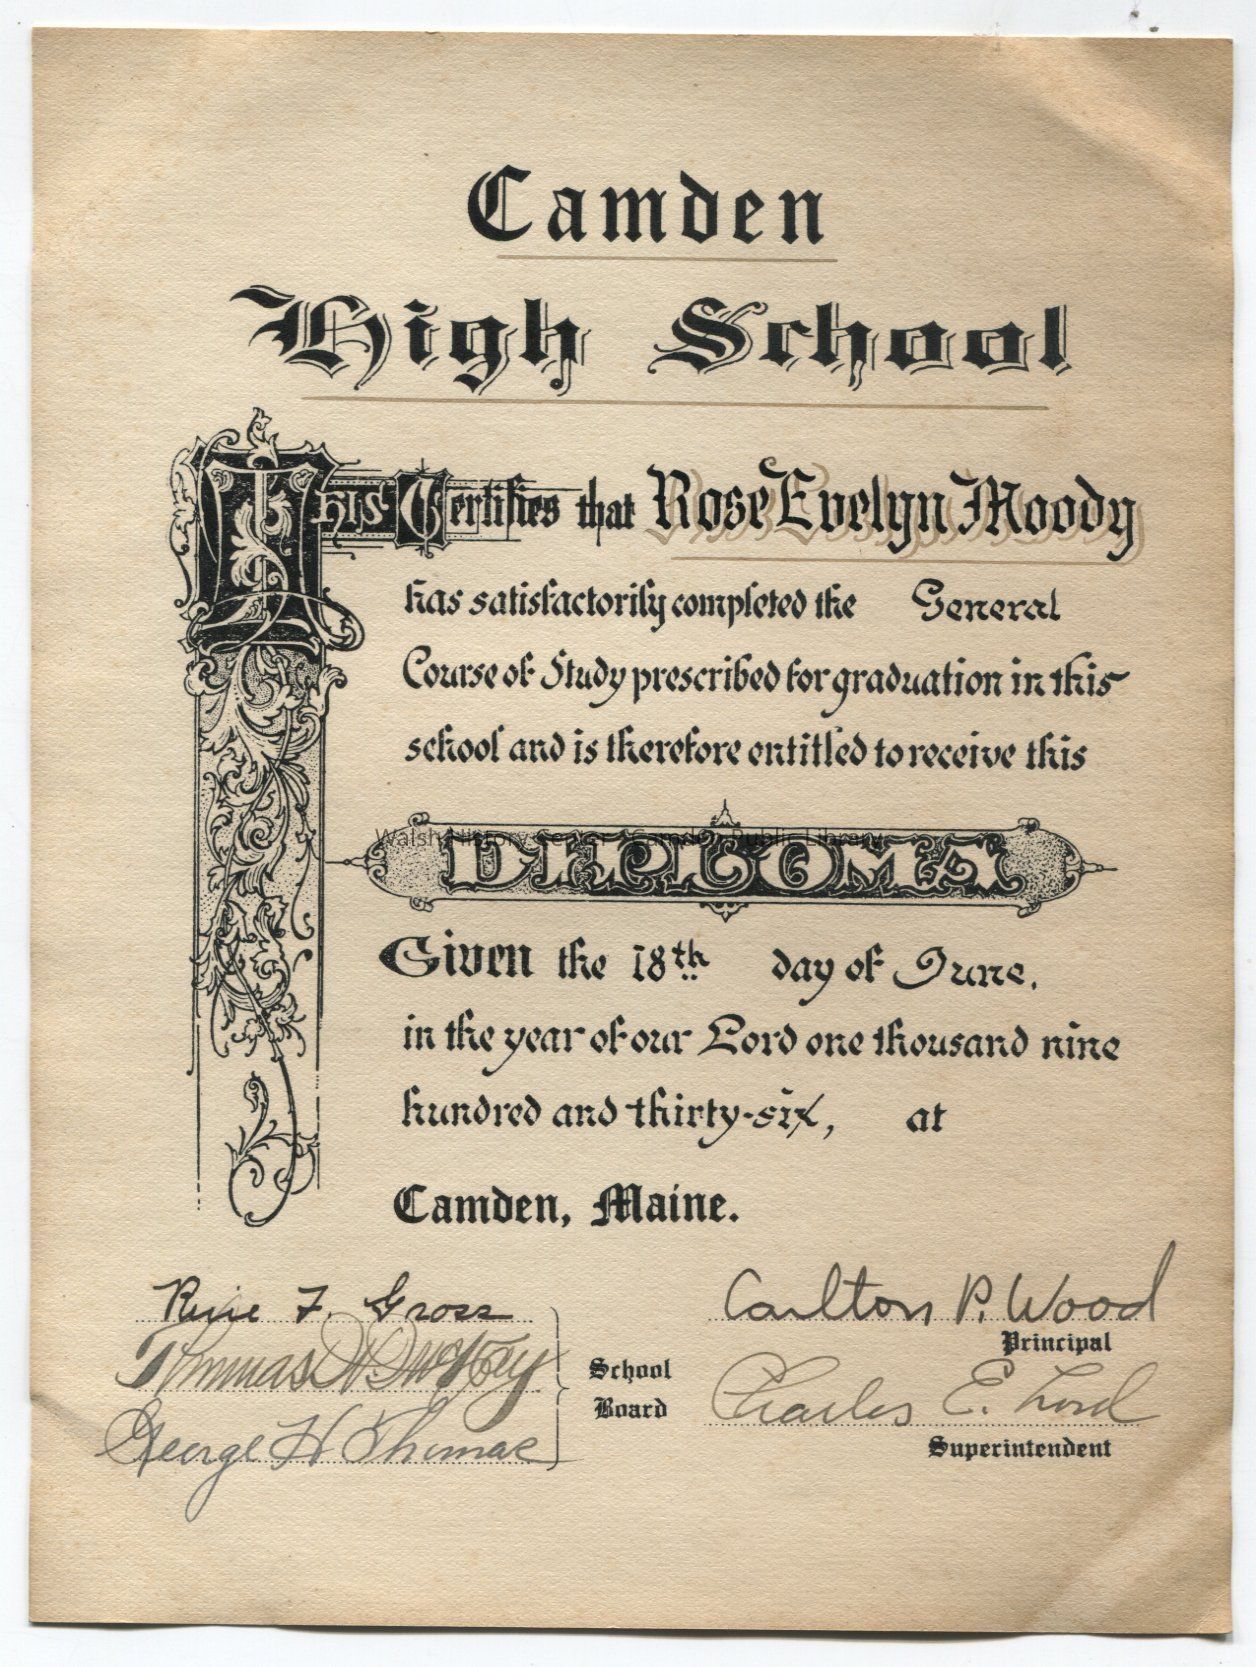 Camden
High School
This Certifies that Rose Evelyn Moody
has satisfactorily completed the General
Course of Study prescribed for graduation in this
school and is therefore entitled to receive this
Walsh History Center - Camden Public Library
DIPLOMA
Given the 18th day of June,
in the year of our Lord one thousand nine
hundred and thirty-six, at
Camden, Maine.
F. Gross
Carlton P. Wood
Principal
Thomas
School
Board
George H Thomas
Charles E. Lord
Superintendent